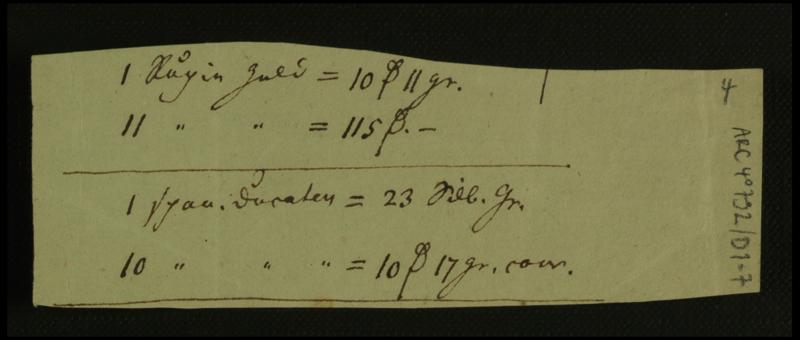 1 Rupin Guld = 10 ₰ 11 gr.
11 " " = 115 ₰. –
1 span. Ducaten = 23 Silb. Gr.
10 " " " = 10 ₰ 17 gr. cour.
4
ARC 4° 792/D1-7